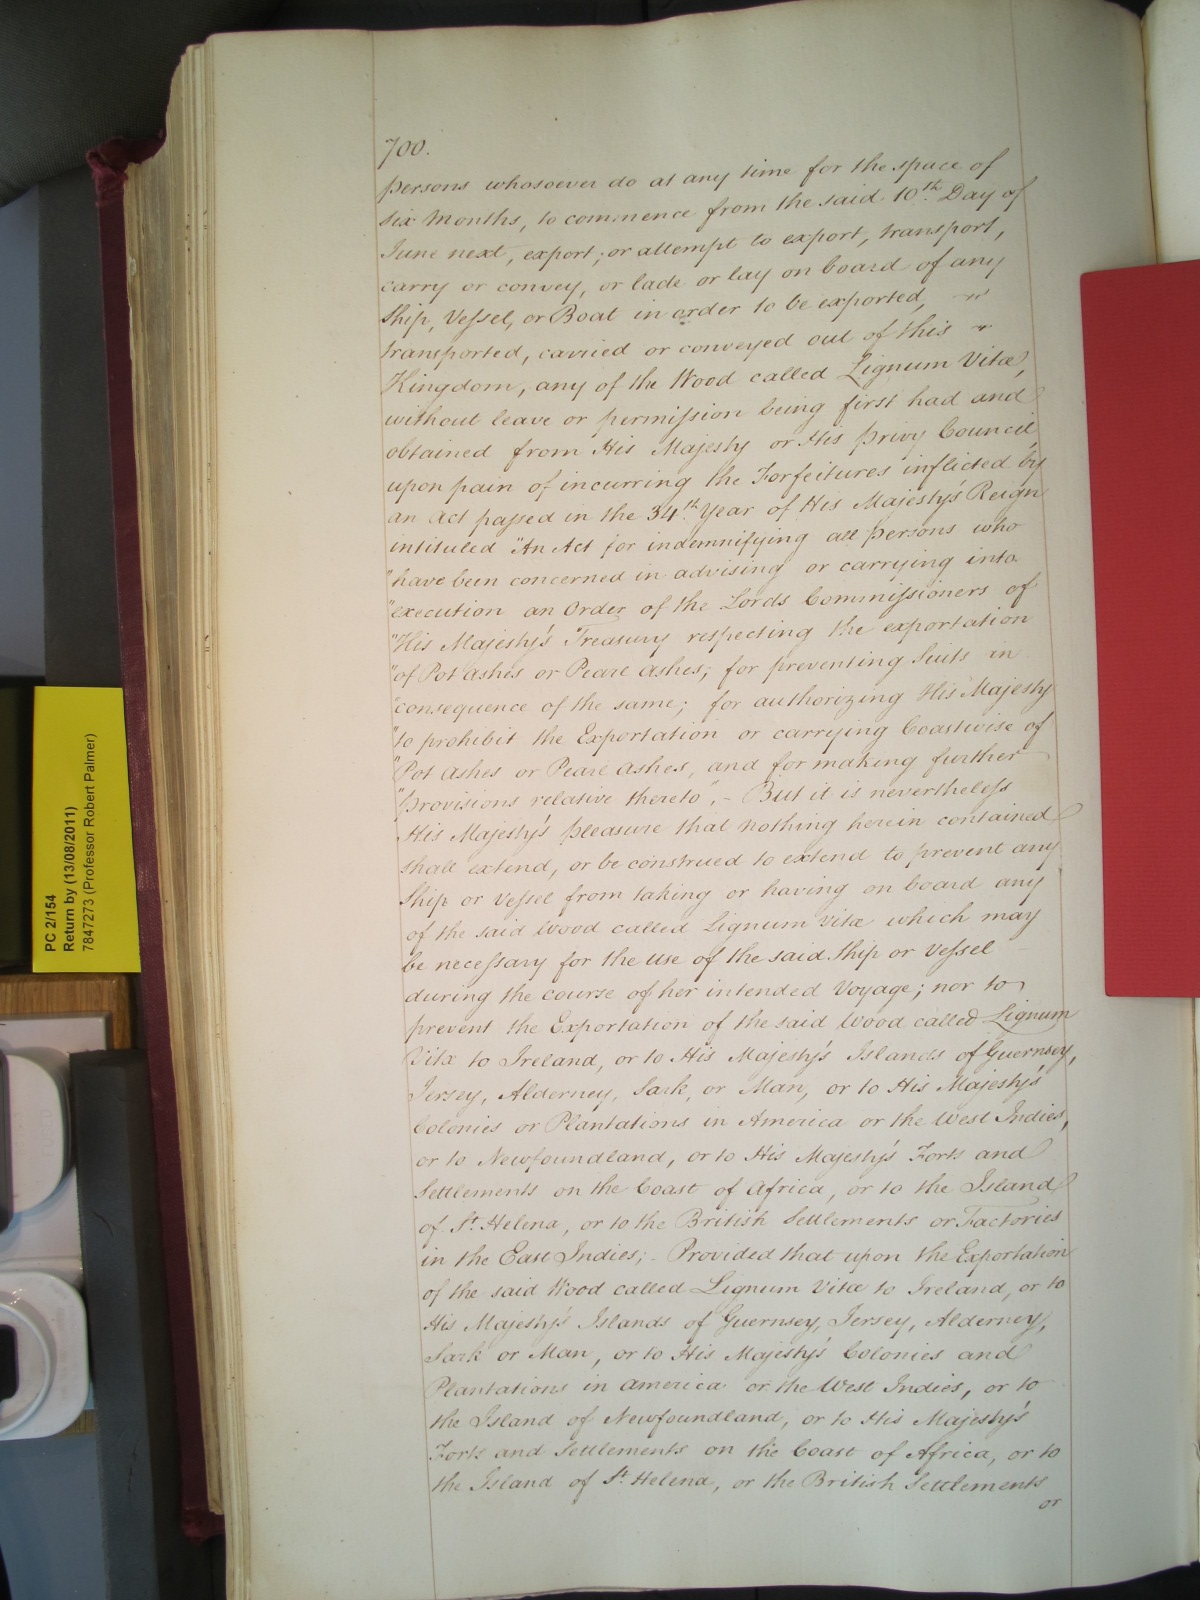 700.
persons whosoever do at any time for the space of
six Months, to commence from the said 10th. Day of
June next, export, or attempt to export, transport,
carry or convey, or lade or lay on board of any
Ship, Vessel, or Boat in order to be exported,
transported, carried or conveyed out of this
Kingdom, any of the Wood called Lignum Vitæ,
without leave or permission being first had and
obtained from His Majesty or His Privy Council,
upon pain of incurring the Forfeitures inflicted by
an Act passed in the 34th. Year of His Majesty's Reign
intituled "An Act for indemnifying all persons who
"have been concerned in advising or carrying into
"execution an Order of the Lords Commissioners of
"His Majesty's Treasury respecting the exportation
"of Pot Ashes or Pearl Ashes; for preventing Suits in
"consequence of the same; for authorizing His Majesty
"to prohibit the Exportation or carrying Coastwise of
"Pot Ashes or Pearl Ashes, and for making further
"provisions relative thereto", - But it is nevertheless
His Majesty's pleasure that nothing herein contained
shall extend, or be construed to extend to prevent any
Ship or Vessel from taking or having on board any
of the said Wood called Lignum Vitæ which may
be necessary for the use of the said Ship or Vessel
during the course of her intended Voyage; nor to
prevent the Exportation of the said Wood called Lignum
Vitæ to Ireland, or to His Majesty's Islands of Guernsey,
Jersey, Alderney, Sark, or Man, or to His Majesty's
Colonies or Plantations in America or the West Indies,
or to Newfoundland, or to His Majesty's Forts and
Settlements on the Coast of Africa, or to the Island
of St. Helena, or to the British Settlements or Factories
in the East Indies; - Provided that upon the Exportation
of the said Wood called Lignum Vitæ to Ireland, or to
His Majesty's Islands of Guernsey, Jersey, Alderney,
Sark or Man, or to His Majesty's Colonies and
Plantations in America or the West Indies, or to
the Island of Newfoundland, or to His Majesty's
Forts and Settlements on the Coast of Africa, or to
the Island of St. Helena, or the British Settlements
or
PC 2/154
Return by (13/08/2011)
7847273 (Professor Robert Palmer)